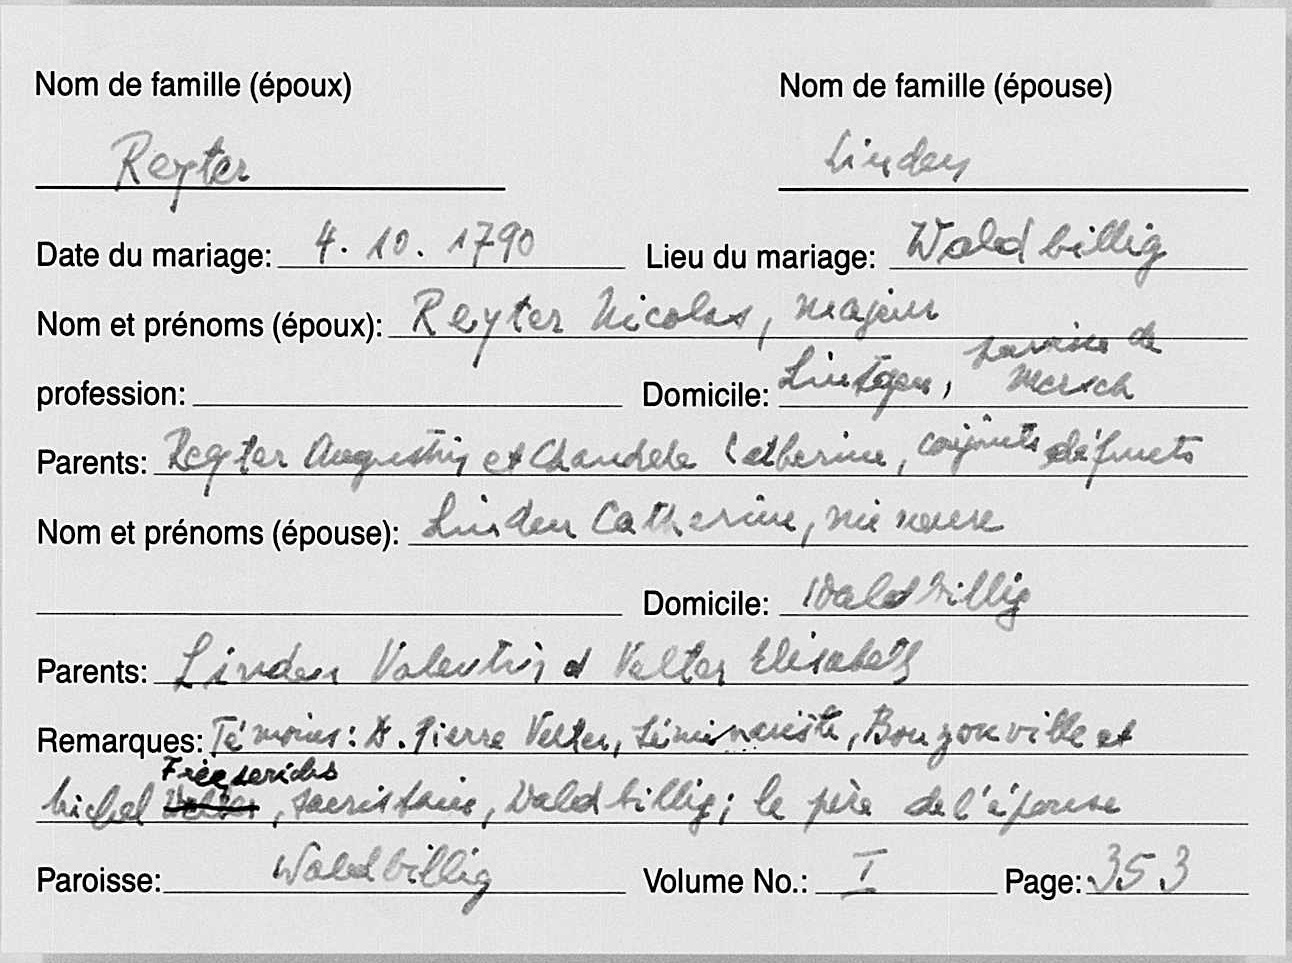 Nom de famille (époux) Nom de famille (épouse)
Reyter Linden
Date du mariage: 4. 10. 1790 Lieu du mariage: Waldbillig
Nom et prénoms (époux): Reyter Nicolas, majeur
profession: Domicile: Lintgen, paroisse de Mersch
Parents: Reyter Augustin et Chandele Catherine, conjoints défunts
Nom et prénoms (épouse): Linden Catherine, mineure
Domicile: Waldbillig
Parents: Linden Valentin et Velter Elisabeth
Remarques: Témoins: D. Pierre Velter, séminariste, Bouzonville et
Michel Freederichs, sacristain, Waldbillig; le père de l'épouse
Paroisse: Waldbillig Volume No.: I Page: 353